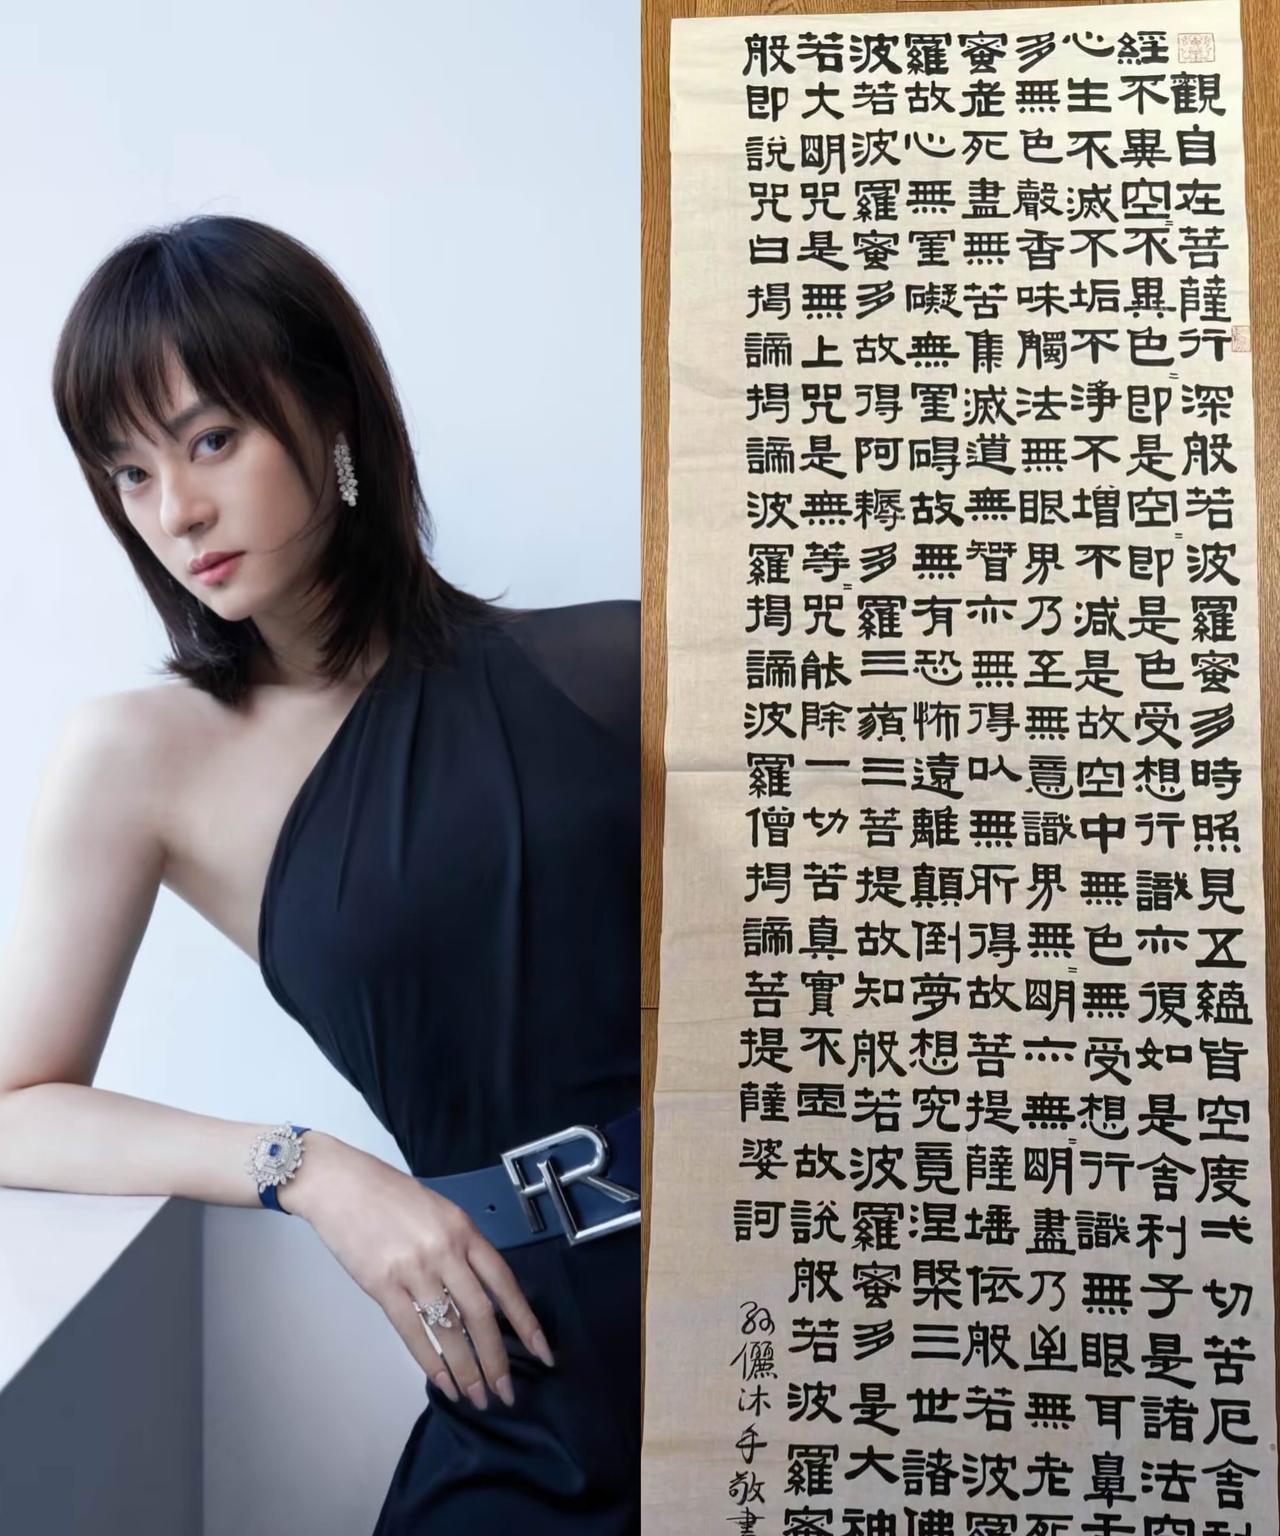 般若波羅蜜多心經
觀自在菩薩行深般若波羅蜜多時照見五蘊皆空度弌切苦厄舍利
不異空=不異色=即是空=即是色受想行識亦復如是舍利子是諸法空
生不滅不垢不淨不增不減是故空中無色無受想行識無眼耳鼻舌
無色聲香味觸法無眼界乃至無意識界無=明亦無=明盡乃至無老死
老死盡無苦集滅道無智亦無得以無所得故菩提薩埵依般若波羅
故心無罣礙無罣碍故無有恐怖遠離顛倒夢想究竟涅槃三世諸佛
若波羅蜜多故得阿耨多羅三藐三菩提故知般若波羅蜜多是大神
大明咒是無上咒是無等=咒能除一切苦真實不虛故說般若波羅蜜
即說咒曰揭諦揭諦波羅揭諦波羅僧揭諦菩提薩婆訶
孫儷沐手敬書